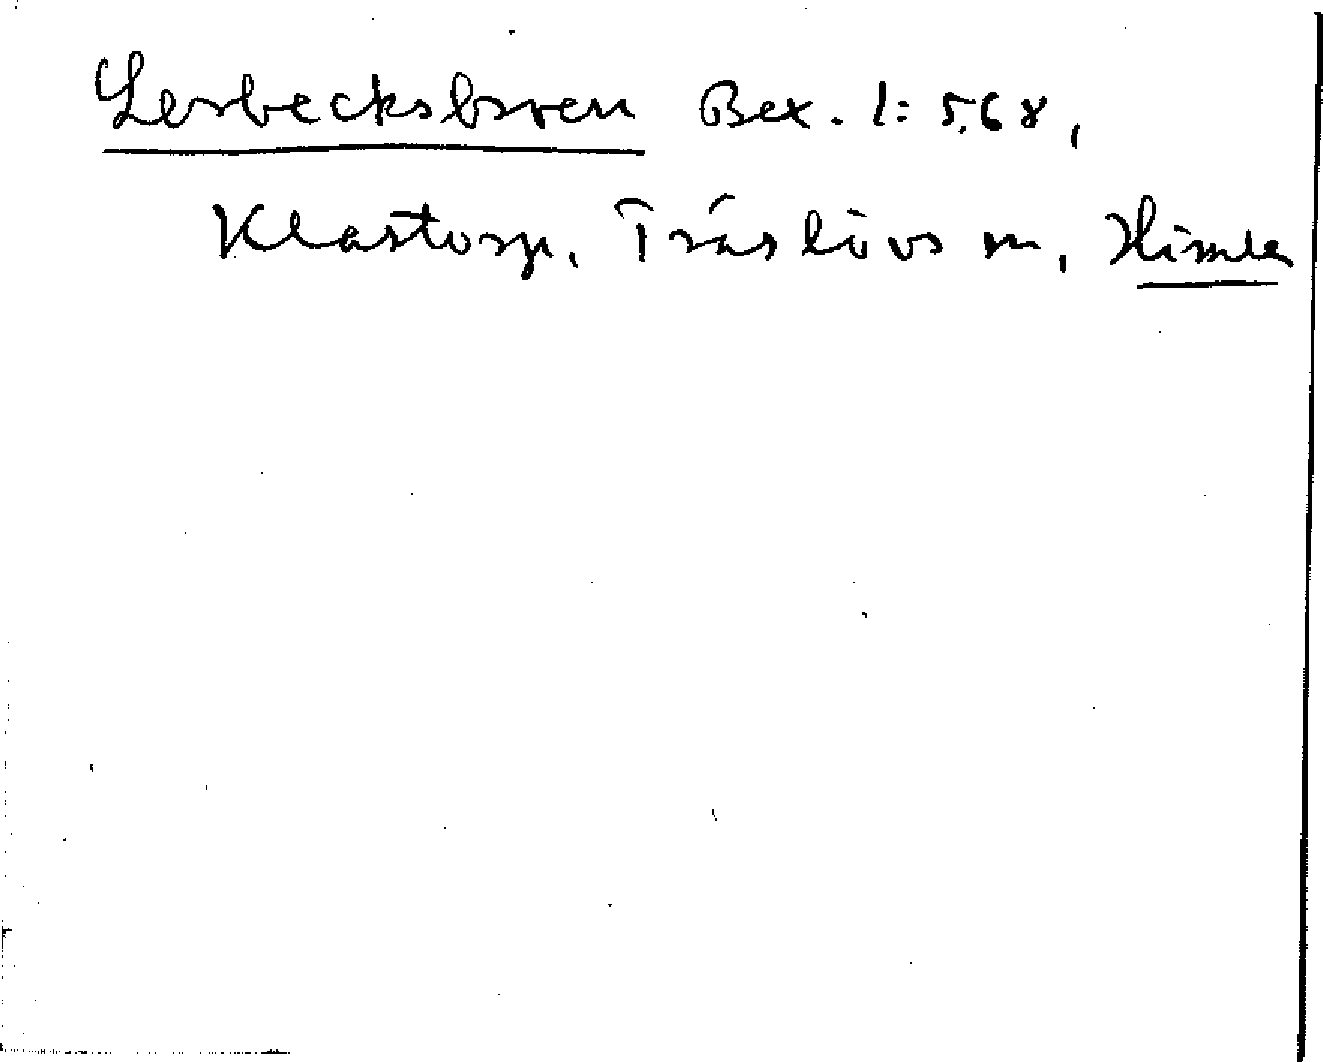 Lerbecksbroen Bex. 1:568,
Klastorp, Träslövs sn, Himle